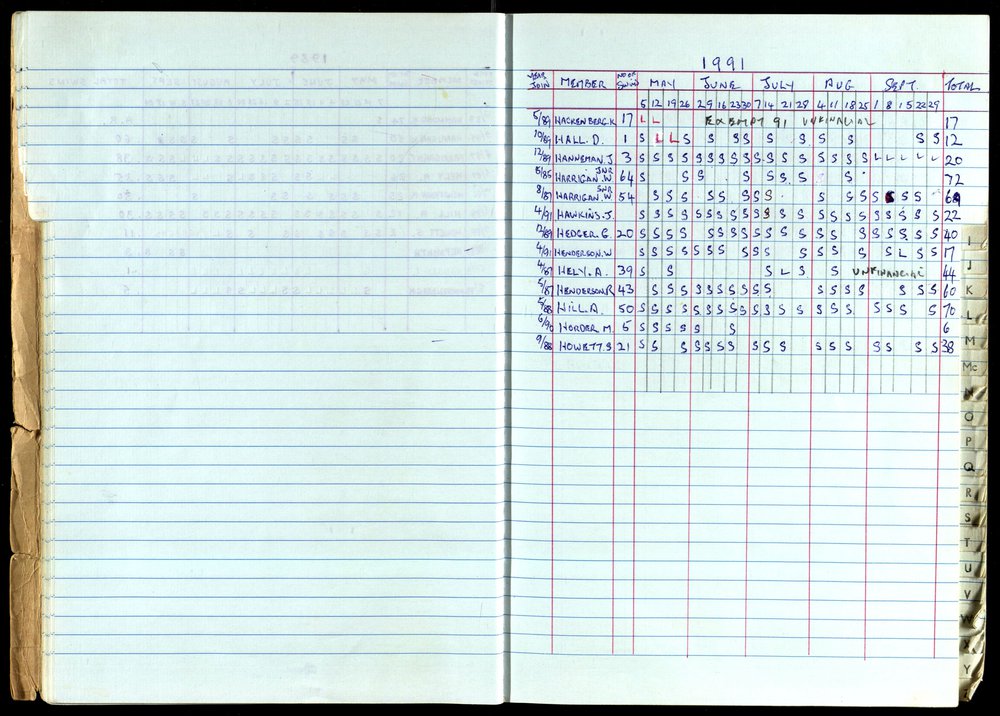 1991
YEAR JOIN MEMBER NO OF SWIM MAY JUNE JULY AUG SEPT. TOTAL
5 12 19 26 2 9 16 23 30 7 14 21 28 4 11 18 25 1 8 15 22 29
5/89 HACKENBERG.K 17 L L EXEMPT 91 UNFINANCIAL 17
10/89 HALL. D. 1 S L L S S S S S S S S S S 12
12/89 HANNEMAN. J 3 S S S S S S S S S S S S S S S S S L L L L L 20
8/85 HARRIGAN. W JNR 64 S S S S S S S S 72
8/87 HARRIGAN. W SNR 54 S S S S S S S S S S S S S S S S
4/91 HAWKINS. J S S S S S S S S S S S S S S S S S S S S S S 22
12/89 HEDGER. G. 20 S S S S S S S S S S S S S S S S S S S S 40
4/91 HENDERSON. W S S S S S S S S S S S S S L S S 17
4/87 HELY. A. 39 S S S L S S UNFINANCIAL 44
5/87 HENDERSON.R 43 S S S S S S S S S S S S S S S S S 60
5/88 HILL. A. 50 S S S S S S S S S S S S S S S S S S S S 70
6/90 HORDER M. 5 S S S S S S 6
9/88 HOWETT. S 21 S S S S S S S S S S S S S S S S S 38
I
J
K
L
M
Mc
N
O
P
Q
R
S
T
U
V
W
X
Y